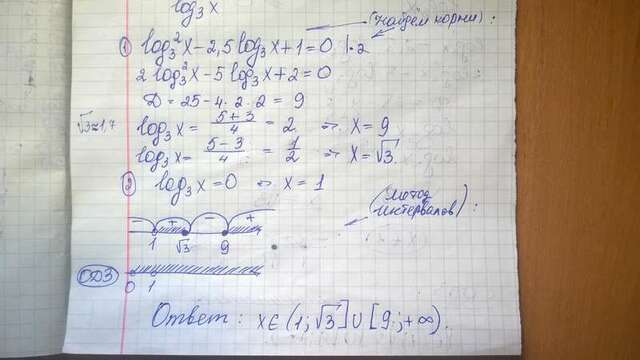 log₃x
(Найдём корни):
① log₃²x-2,5log₃x+1=0 |·2
2log₃²x-5log₃x+2=0
D=25-4·2·2=9
√3≈1,7
log₃x= (5+3)/4 = 2 → x=9
log₃x= (5-3)/4 = 1/2 → x=√3
② log₃x=0 → x=1
(метод интервалов):
- + - +
1 √3 9
ОДЗ
0 1
Ответ: x∈(1;√3]∪[9;+∞).